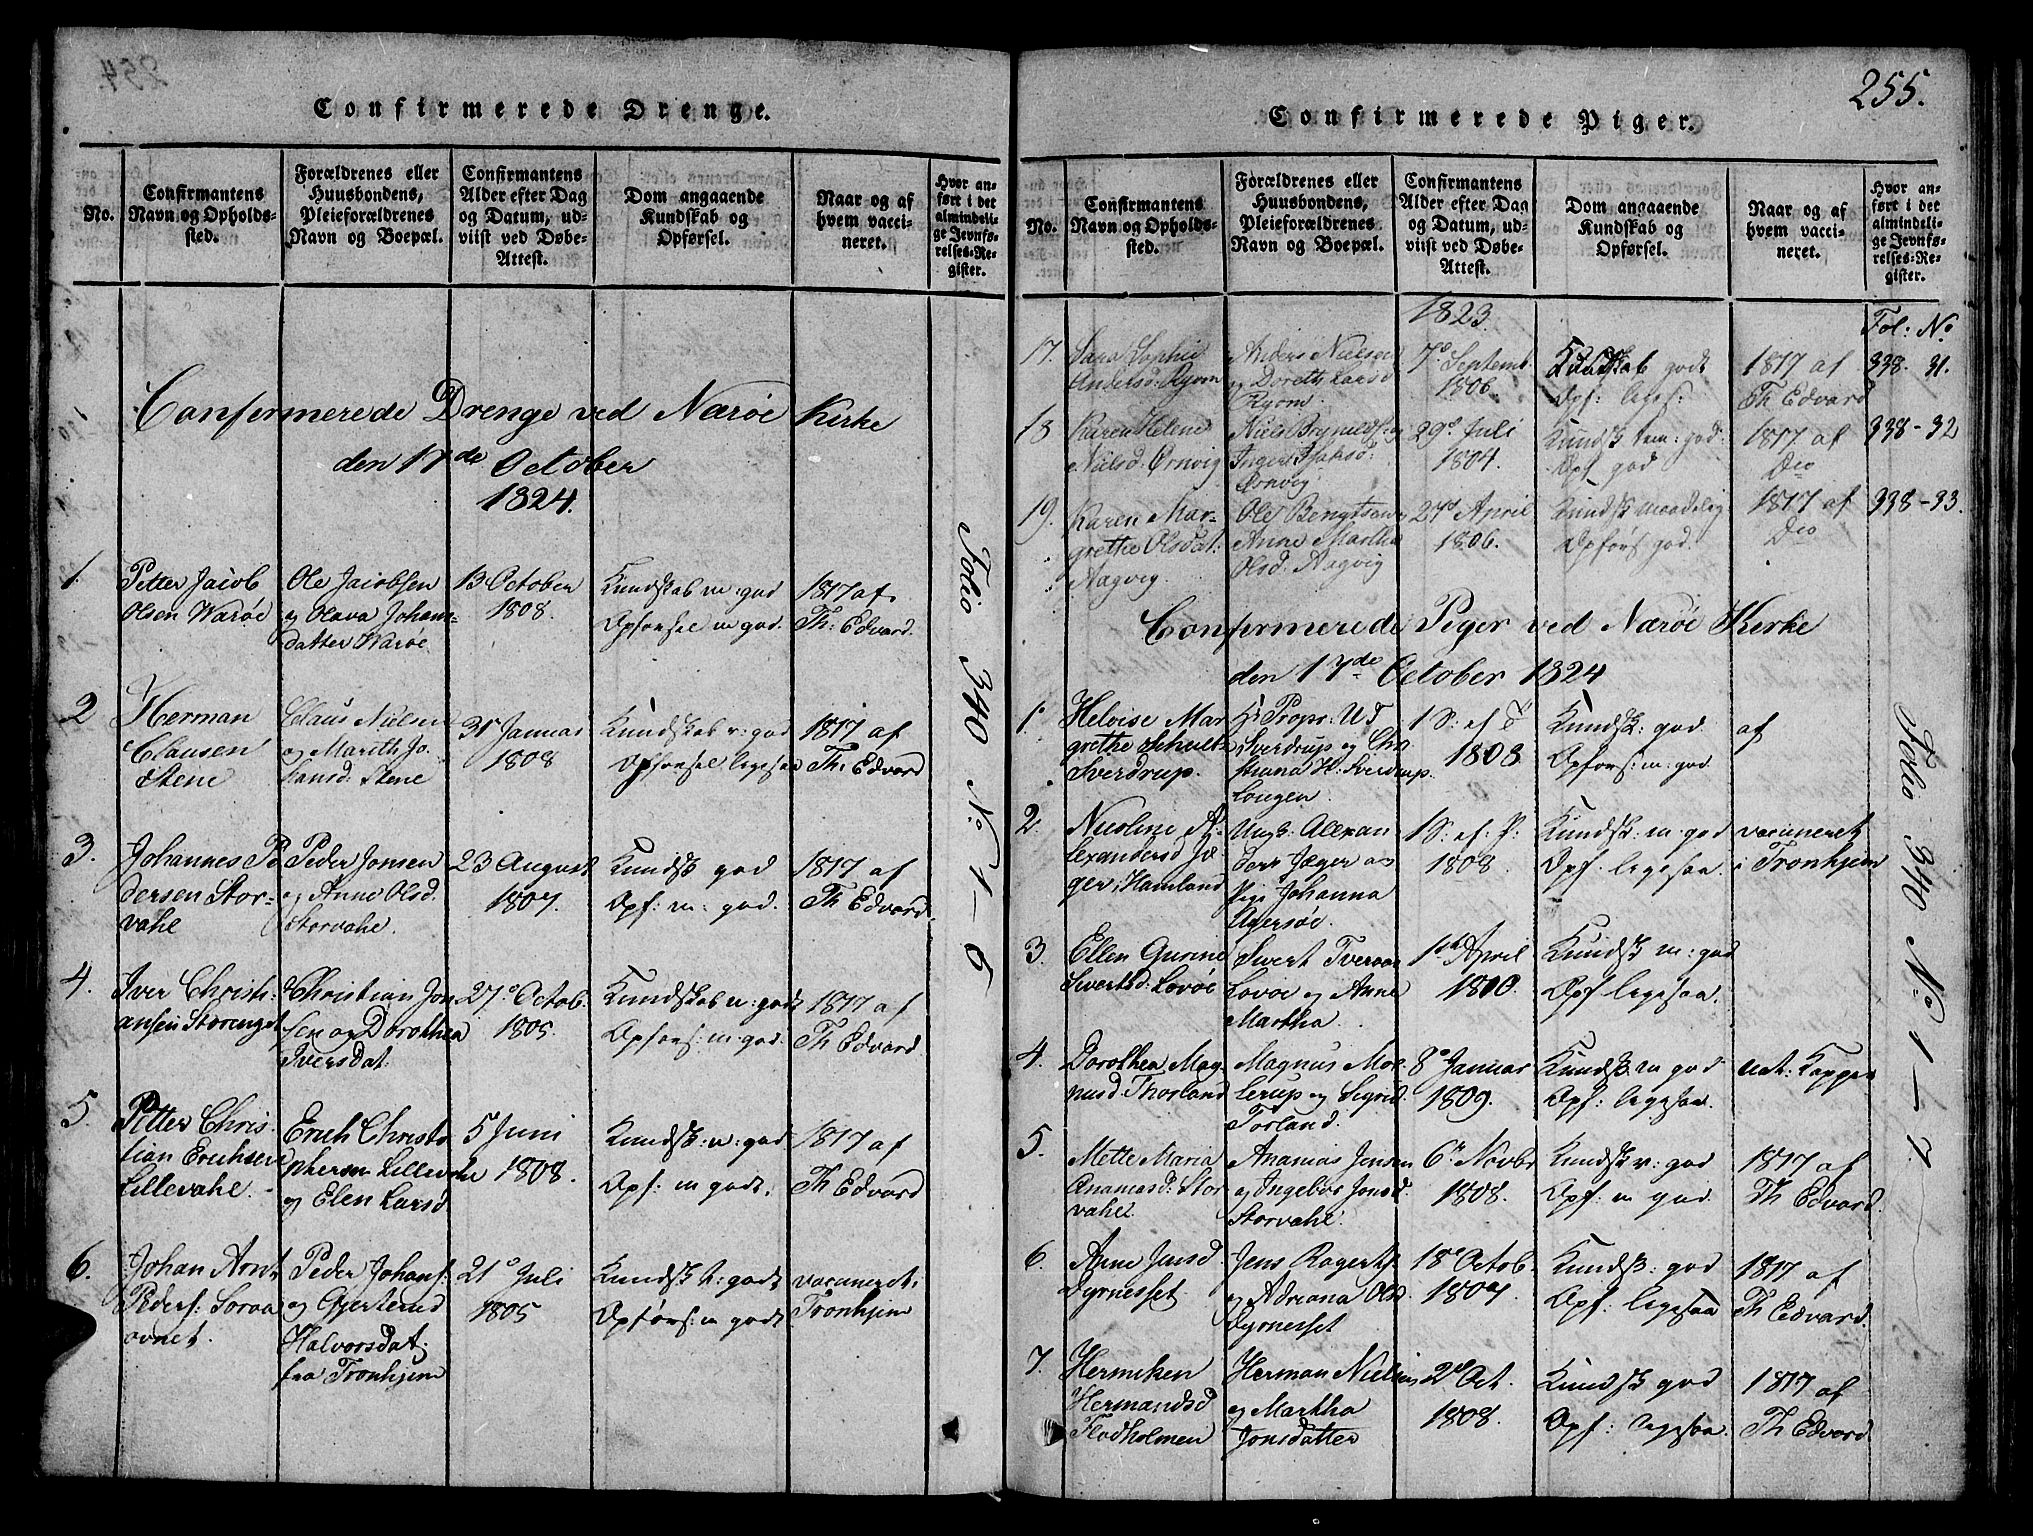 Confirmerede Drenge.
No.
Confirmantens
Navn og Opholds-
sted.
Forældrenes eller
Huusbondens,
Pleieforældrenes
Navn og Boepæl.
Confirmantens
Alder efter Dag
og Datum, ud-
viist ved Døbe-
Attest.
Dom angaaende
Kundskab og
Opførsel.
Naar og af
hvem vacci-
neret.
Hvor an-
ført i det
almindeli-
ge Jevnfø-
relses-Re-
gister.
Confermerede Drenge ved Nærøe Kirke
den 17de October
1824.
1.
Petter Jacob
Olsen Warøe
Ole Jacobsen
og Olava Johans-
datter Warøe
13 October
1808.
Kundskab m: god
Opførsel m god.
1817 af
Th: Edvard.
2
Herman
Clausen
Stene
Claus Nielsen
og Marith Jo-
hansd. Stene
31 Januar
1808
Kundskab v: god
Opførsel ligesaa
1817 af
Th: Edvard
3.
Johannes Pe
dersen Stor-
vahle
Peder Jonsen
og Anne Olsd.
Storvahle.
23 August
1807.
Kundsk god
Opf: m: god.
1817 af
Th Edvard.
4.
Iver Christi-
ansen Storenget
Christian Jon
sen og Dorothea
Iversdat:
27de Octob.
1805.
Kundskab m: godt
Opførs: m: god.
1817 af
Th Edvard
5.
Petter Chris-
tian Erichsen
Lillevahle.
Erich Christo
phersen Lillevahle
og Elen Larsd
5 Juni
1808.
Kundsk: m: god
Opf: m godt.
1817 af
Th Edvard
6.
Johan Arnt
Peders: Soraa
ovnet.
Peder Johans:
og Gjertrud
Halvorsdat:
fra Tronhjem
21de Juli
1805
Kundsk t: godt
Opførs: m godt
vacineret i
Tronhjem
Folio 340 No 1 – 6
255.
Confirmerede Piger.
No.
Confirmantens
Navn og Opholds-
sted.
Forældrenes eller
Huusbondens,
Pleieforældrenes
Navn og Boepæl.
Confirmantens
Alder efter Dag
og Datum, ud-
viist ved Døbe-
Attest.
Dom angaaende
Kundskab og
Opførsel.
Naar og af
hvem vacci-
neret.
Hvor an-
ført i det
almindeli-
ge Jevnfø-
relses-Re-
gister.
1823.
Fol: No
17.
Sara Sophie
Andersd: Ryom
Anders Nielsen
og Doreth Larsd
Ryom.
7de Septemb.
1806.
Kundskab godt
Opf: liges:
1817 af
Th Edvard
338. 31.
18
Karen Helene
Nielsd: Ørnvig
Niels Brynildsen og
Inger Isaksd:
Ørnvig.
29de Juli
1804.
Kundsk tem: god.
Opf god
1817 af
Do
338-32
19.
Karen Mar-
grethe Olsdat:
Aagvig.
Ole Bengtsen
Anne Martha
Olsd: Aagvig
27de April
1806.
Kundsk maadelig
Opførs god.
1817 af
Do
338-33.
Confermerede Piger ved Nærøe Kerke
den 17de October 1824
1.
Heloise Mar
grethe Schult-
Sverdrup.
Hr Propr: U T
Sverdrup og Chri
stiana H: Sverdrup.
Lougen.
1 S: af F
1808
Kundsk: god
Opførs: m: god
af
2.
Nicoline A-
lexandersd Jæ-
ger, Hamland
Ungk: Alexan
ders Jæger og
Pige Johanna
Agersøe.
1 S: af: P:
1808.
Kundsk: m: god
Opf: ligesaa.
vacineret
i Tronhjem
3.
Ellen Gurine
Sivertsd: Lovøe
Sivert Tveraa
Lovøe og Anne
Martha.
1st April
1808.
Kundsk m: god
Opf ligesaa.
4.
Dorothea Mag
nusd Thorland
Magnus Mol-
lerup og Sigrid
Torland.
8de Januar
1809.
Kundsk m god
Opf: ligesaa.
nat: Kopper
5.
Mette Maria
Ananiasd: Stor
vahle
Ananias Jensen
og Ingebor Jonsd.
Storvahle.
6te Novbr
1808.
Kundsk v: god
Opf: m god.
1817 af
Th Edvard.
6.
Anne Jensd
Dyrnesset
Jens Rogerts:
og Adriana Olsd
Dyrnesset
18de Octob.
1807.
Kundsk: god
Opf: ligesaa
1817 af
Th Edvard.
7.
Hermiken
Hermandsd
Flodholmen
Herman Nielsen
og Martha
Jonsdatter
2de Oct.
1808.
Kundsk god
Opf: ligesaa.
1817 af
Th Edvard
Folio 340 No 1 – 7.